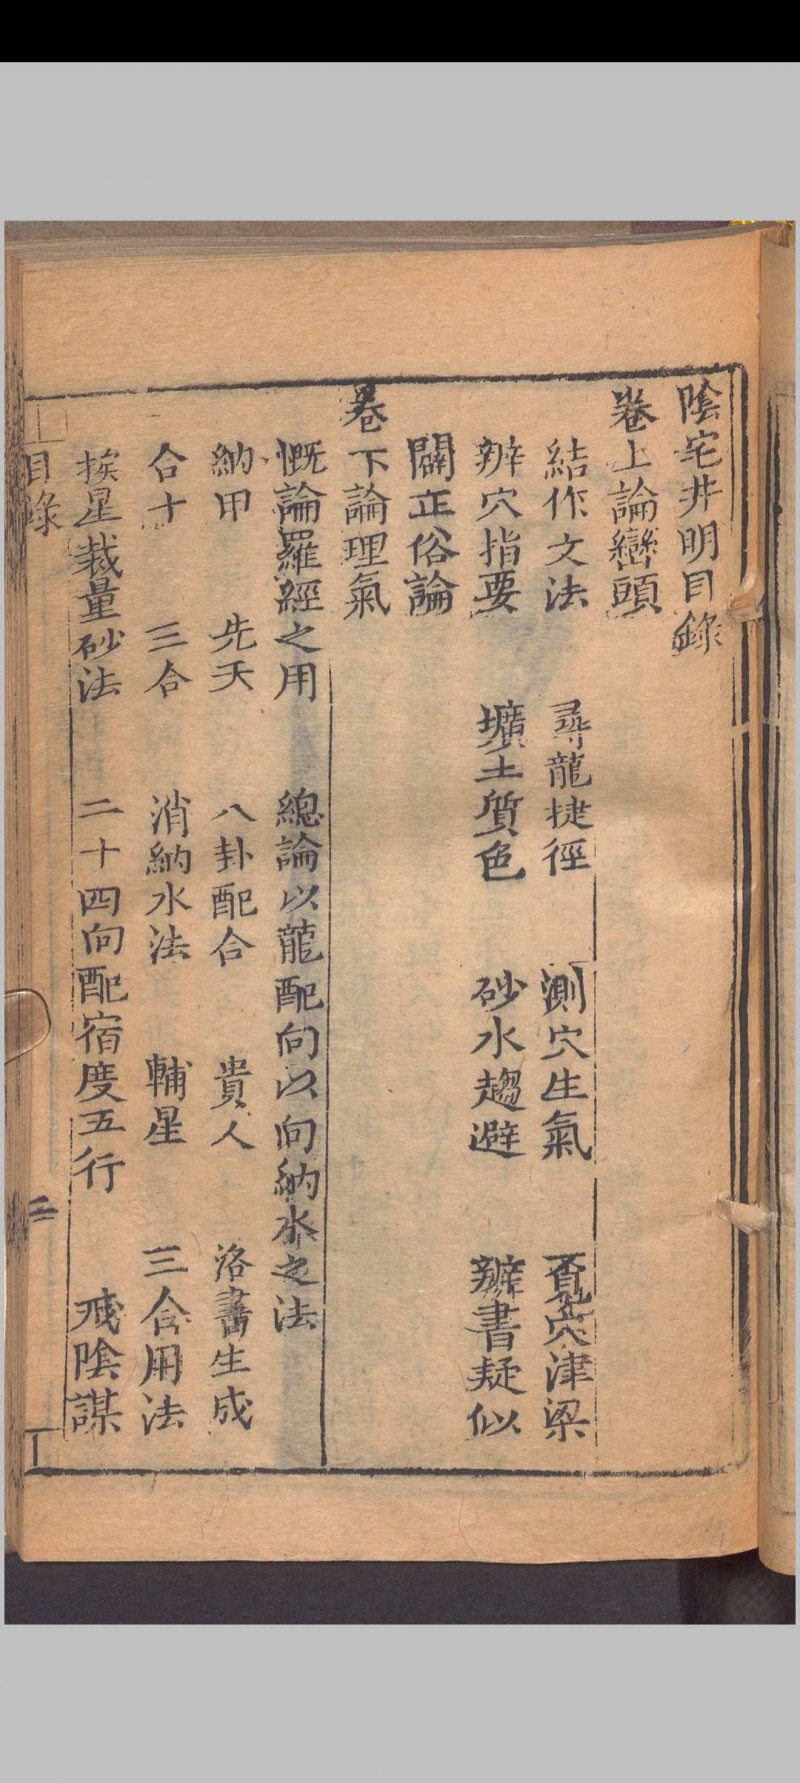 陰宅井明目錄
卷上論巒頭
結作文法 尋龍捷徑 測穴生氣 覔穴津梁
辨穴指要 壙土質色 砂水趨避 辦書疑似
闢正俗論
卷下論理氣
慨論羅經之用 總論以龍配向以向納水之法
納甲 先天 八卦配合 貴人 洛書生成
合十 三合 消納水法 輔星 三合用法
挨星裁量砂法 二十四向配宿度五行 戒陰謀
目錄 二